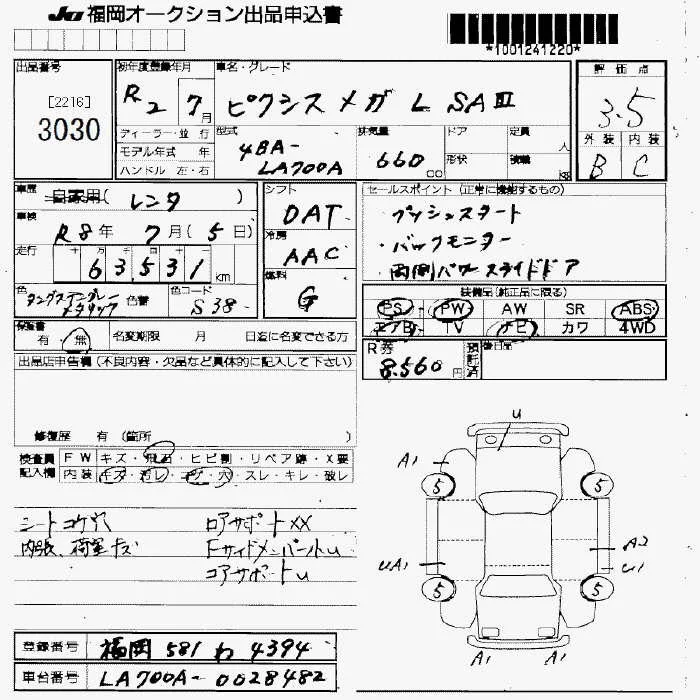 JU 福岡オークション出品申込書
*1001241220*
出品番号
[2216]
3030
初年度登録年月
R2 7月
ディーラー・並行
モデル年式 年
ハンドル 左・右
車名・グレード
ピクシスメガ L SAⅢ
型式
4BA-
LA700A
排気量
660 cc
ドア
形状
定員
人
積載
kg
評価点
3.5
外装 内装
B C
車歴
自家用(レンタ )
車検
R8年 7月(5日)
走行
十 万 千 百 十 一
63,531 km
色
タングステングレー
メタリック
色替
色コード
S38-
シフト
DAT
冷房
AAC
燃料
G
セールスポイント(正常に機能するもの)
・プッシュスタート
・バックモニター
・両側パワースライドドア
装備品(純正品に限る)
PS PW AW SR ABS
エアB TV ナビ カワ 4WD
保証書
有・無
名変期限 月 日迄に名変できる方
R券
8,560円
預託済
後日品
出品店申告欄(不良内容・欠品など具体的に記入して下さい)
修復歴 有(箇所 )
検査員
記入欄
FW キズ・飛石・ヒビ割・リペア跡・X要
内装 キズ・汚レ・コゲ・穴・スレ・キレ・破レ
シートコゲ穴
内張、荷室キズ
ロアサポートXX
FサイドメンバーU
コアサポートU
U
A1
5
5
UA1
A2
U1
5
5
A1
A1
登録番号 福岡 581 わ 4394
車台番号 LA700A-0028482